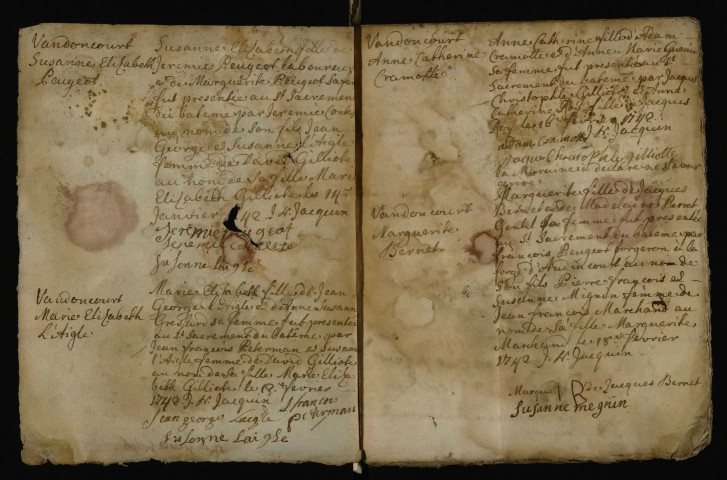 Vandoncourt
Susanne Elizabeth
Peugeot
Susanne Elizabeth fille de
Jeremie Peugeot laboureur
et de Marguerite Peugeot sa fe
fut presentée au St Sacrement
du bateme par Jeremie
au nom de son fils Jean
George et Susanne L'Aigle
femme de David Gilliote
au nom de sa fille Marie
Elizabeth Gilliote le 14me
Janvier 1742 J. N. Jacquin
Jeremie peugeot
Jeremie
Susonne Laigle
Vandoncourt
Marie Elizabeth
L'Aigle
Marie Elizabeth fille de Jean
George L'Aigle et d'Anne Susanne
sa femme fut presentée
au St Sacrement du bateme par
Jean François Peterman et Susanne
l'Aigle femme de David Gilliote
au nom de sa fille Marie Eliza
beth Gilliote le fevrier
1742 J. N. Jacquin J francois
Jean george Laigle Peterman
Susonne Laigle
Vandoncourt
Anne Catherine
Cramotte
Anne Catherine fille d'Adam
Cramotte et d'Anne Marie
sa femme fut presentée au St
Sacrement du bateme par Jaques
Christophle Gilliote et Anne
Catherine fille de Jaques
le 16 1742
adam Cramotte J. N. Jacquin
Jaque Christophle Gilliotte
la Maraine a declaré ne savoir
Vandoncourt
Marguerite
Bernet
Marguerite fille de Jaques
Bernet et de Madeleine Pernet
sa femme fut presentée
au St Sacrement du bateme par
François Peugeot forgeron à la
forge d'Audincourt au nom de
son fils Pierre François et
Mignon femme de
Jean François Marchand au
nom de sa fille Marguerite
Marchand le 18me fevrier
1742 J. N. Jacquin
Marque IB de Jacques Bernet
Susanne megnin